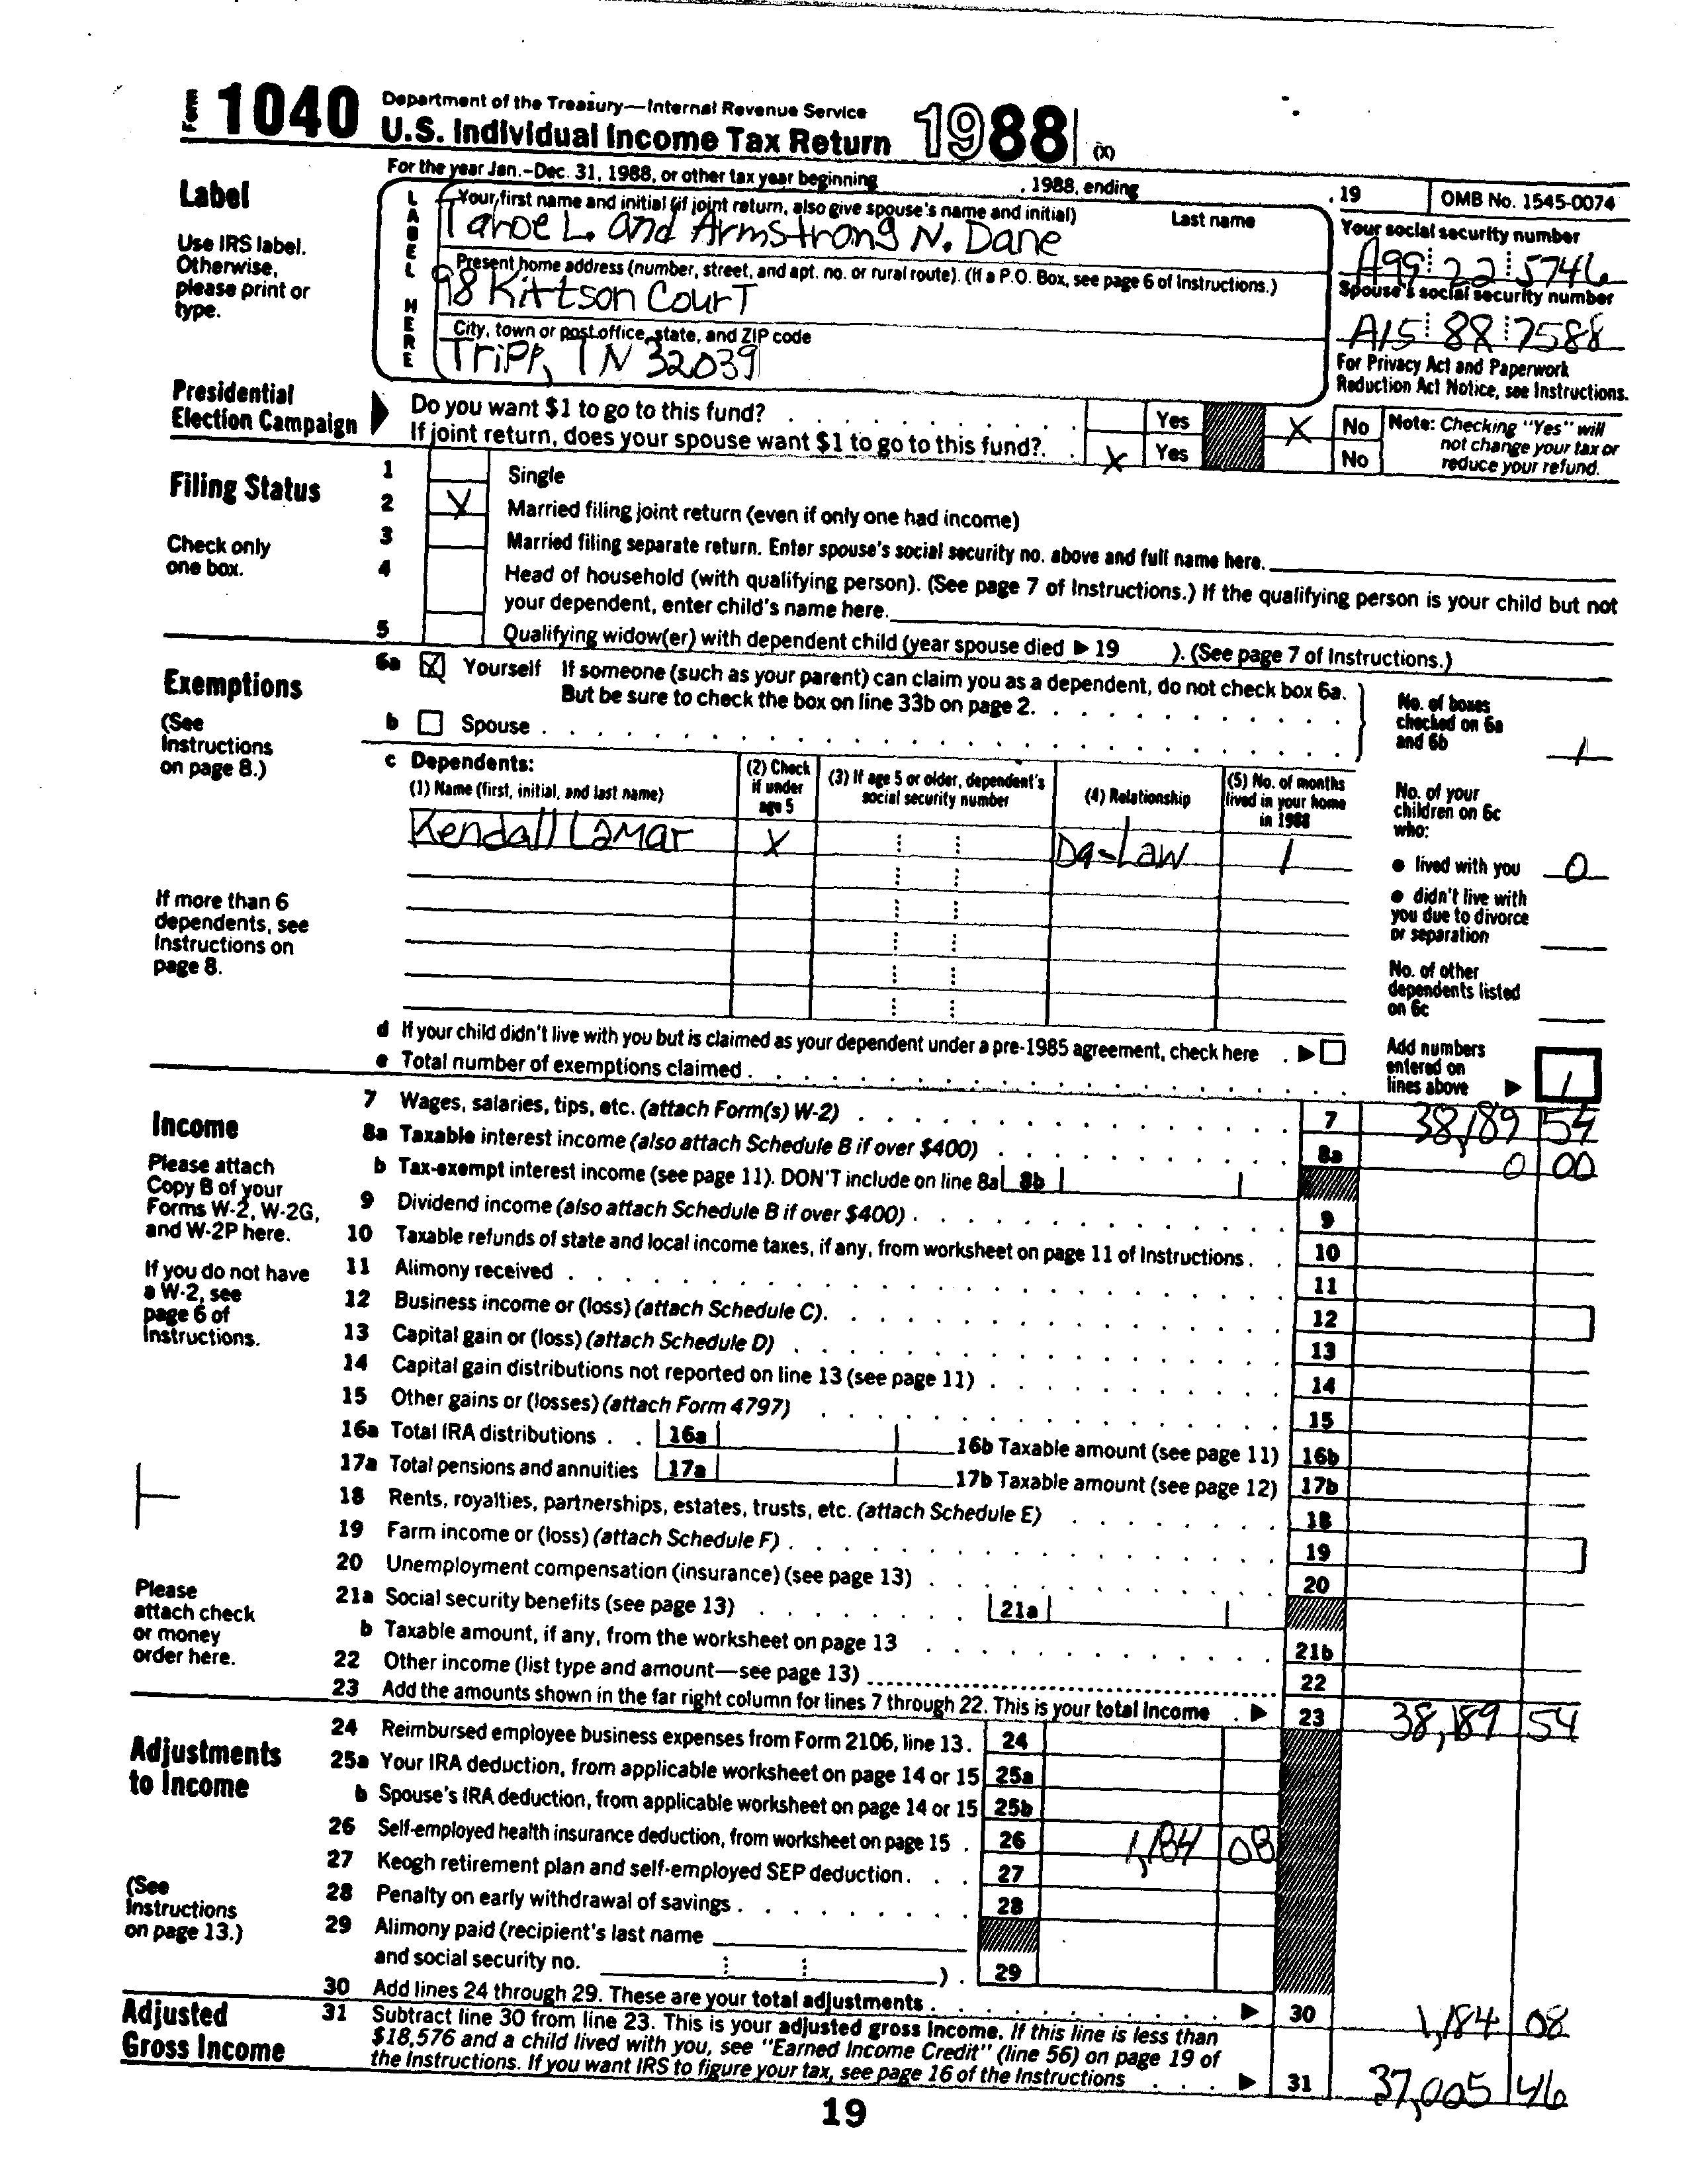 Form 1040 Department of the Treasury—Internal Revenue Service
U.S. Individual Income Tax Return 1988 (X)
For the year Jan.-Dec. 31, 1988, or other tax year beginning , 1988, ending , 19 OMB No. 1545-0074
Label
Use IRS label.
Otherwise,
please print or
type.
LABEL HERE
Your first name and initial (if joint return, also give spouse's name and initial) Last name
Tahoe L. and Armstrong N. Dane
Your social security number
A99 22 5746
Present home address (number, street, and apt. no. or rural route). (If a P.O. Box, see page 6 of Instructions.)
98 Kittson Court
Spouse's social security number
A15 88 7588
City, town or post office, state, and ZIP code
Tripp, TN 32039
For Privacy Act and Paperwork
Reduction Act Notice, see Instructions.
Presidential
Election Campaign
Do you want $1 to go to this fund? Yes X No
If joint return, does your spouse want $1 to go to this fund? X Yes No
Note: Checking "Yes" will
not change your tax or
reduce your refund.
Filing Status
Check only
one box.
1 Single
2 X Married filing joint return (even if only one had income)
3 Married filing separate return. Enter spouse's social security no. above and full name here.
4 Head of household (with qualifying person). (See page 7 of Instructions.) If the qualifying person is your child but not
your dependent, enter child's name here.
5 Qualifying widow(er) with dependent child (year spouse died ▶ 19 ). (See page 7 of Instructions.)
Exemptions
(See
Instructions
on page 8.)
6a X Yourself If someone (such as your parent) can claim you as a dependent, do not check box 6a.
But be sure to check the box on line 33b on page 2.
b Spouse
No. of boxes
checked on 6a
and 6b 1
c Dependents:
(1) Name (first, initial, and last name)
(2) Check
if under
age 5
(3) If age 5 or older, dependent's
social security number
(4) Relationship
(5) No. of months
lived in your home
in 1988
Kendall Lamar X Da-Law 1
No. of your
children on 6c
who:
● lived with you 0
● didn't live with
you due to divorce
or separation
No. of other
dependents listed
on 6c
If more than 6
dependents, see
Instructions on
page 8.
d If your child didn't live with you but is claimed as your dependent under a pre-1985 agreement, check here ▶
e Total number of exemptions claimed
Add numbers
entered on
lines above ▶ 1
Income
Please attach
Copy B of your
Forms W-2, W-2G,
and W-2P here.
If you do not have
a W-2, see
page 6 of
Instructions.
7 Wages, salaries, tips, etc. (attach Form(s) W-2) 7 38,189 54
8a Taxable interest income (also attach Schedule B if over $400) 8a 0 00
b Tax-exempt interest income (see page 11). DON'T include on line 8a 8b
9 Dividend income (also attach Schedule B if over $400) 9
10 Taxable refunds of state and local income taxes, if any, from worksheet on page 11 of Instructions 10
11 Alimony received 11
12 Business income or (loss) (attach Schedule C) 12
13 Capital gain or (loss) (attach Schedule D) 13
14 Capital gain distributions not reported on line 13 (see page 11) 14
15 Other gains or (losses) (attach Form 4797) 15
16a Total IRA distributions 16a 16b Taxable amount (see page 11) 16b
17a Total pensions and annuities 17a 17b Taxable amount (see page 12) 17b
18 Rents, royalties, partnerships, estates, trusts, etc. (attach Schedule E) 18
19 Farm income or (loss) (attach Schedule F) 19
20 Unemployment compensation (insurance) (see page 13) 20
21a Social security benefits (see page 13) 21a
b Taxable amount, if any, from the worksheet on page 13 21b
22 Other income (list type and amount—see page 13) 22
23 Add the amounts shown in the far right column for lines 7 through 22. This is your total income ▶ 23 38,189 54
Please
attach check
or money
order here.
Adjustments
to Income
(See
Instructions
on page 13.)
24 Reimbursed employee business expenses from Form 2106, line 13. 24
25a Your IRA deduction, from applicable worksheet on page 14 or 15 25a
b Spouse's IRA deduction, from applicable worksheet on page 14 or 15 25b
26 Self-employed health insurance deduction, from worksheet on page 15 26 1,184 08
27 Keogh retirement plan and self-employed SEP deduction 27
28 Penalty on early withdrawal of savings 28
29 Alimony paid (recipient's last name
and social security no. ) 29
30 Add lines 24 through 29. These are your total adjustments ▶ 30 1,184 08
Adjusted
Gross Income
31 Subtract line 30 from line 23. This is your adjusted gross income. If this line is less than
$18,576 and a child lived with you, see "Earned Income Credit" (line 56) on page 19 of
the Instructions. If you want IRS to figure your tax, see page 16 of the Instructions ▶ 31 37,005 46
19